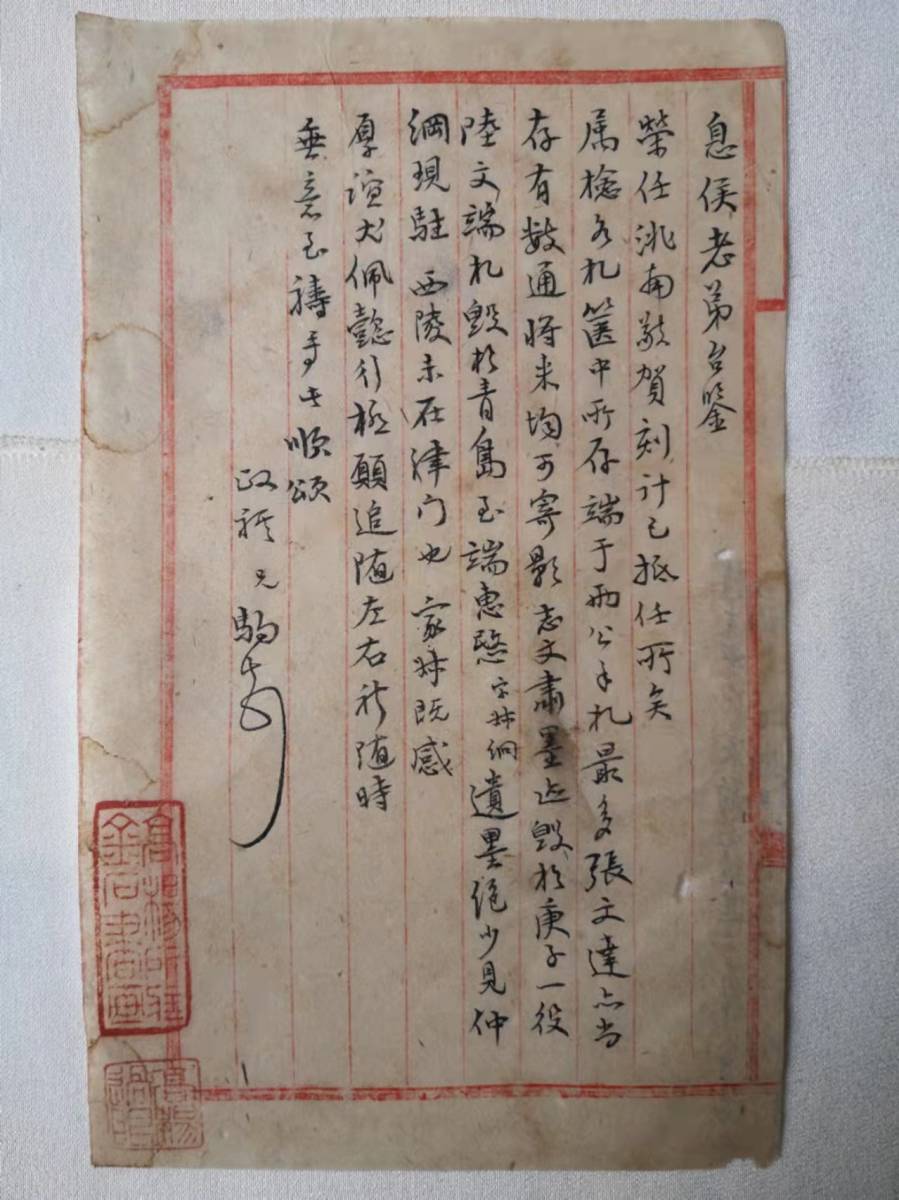 息侯老弟台鑒
榮任洮南敬賀刻計已抵任所矣
属檢各札篋中所存端于兩公手札最多張文達亦尚
存有數通將来均可寄影志文肅墨迹毀於庚子一役
陸文端札毀於青島至端惠愍遺墨絕少見仲
綱現駐西陵未在津門也家 既感
厚誼尤佩懿行極願追随左右祈随時
垂意至禱手此順頌
政祺兄